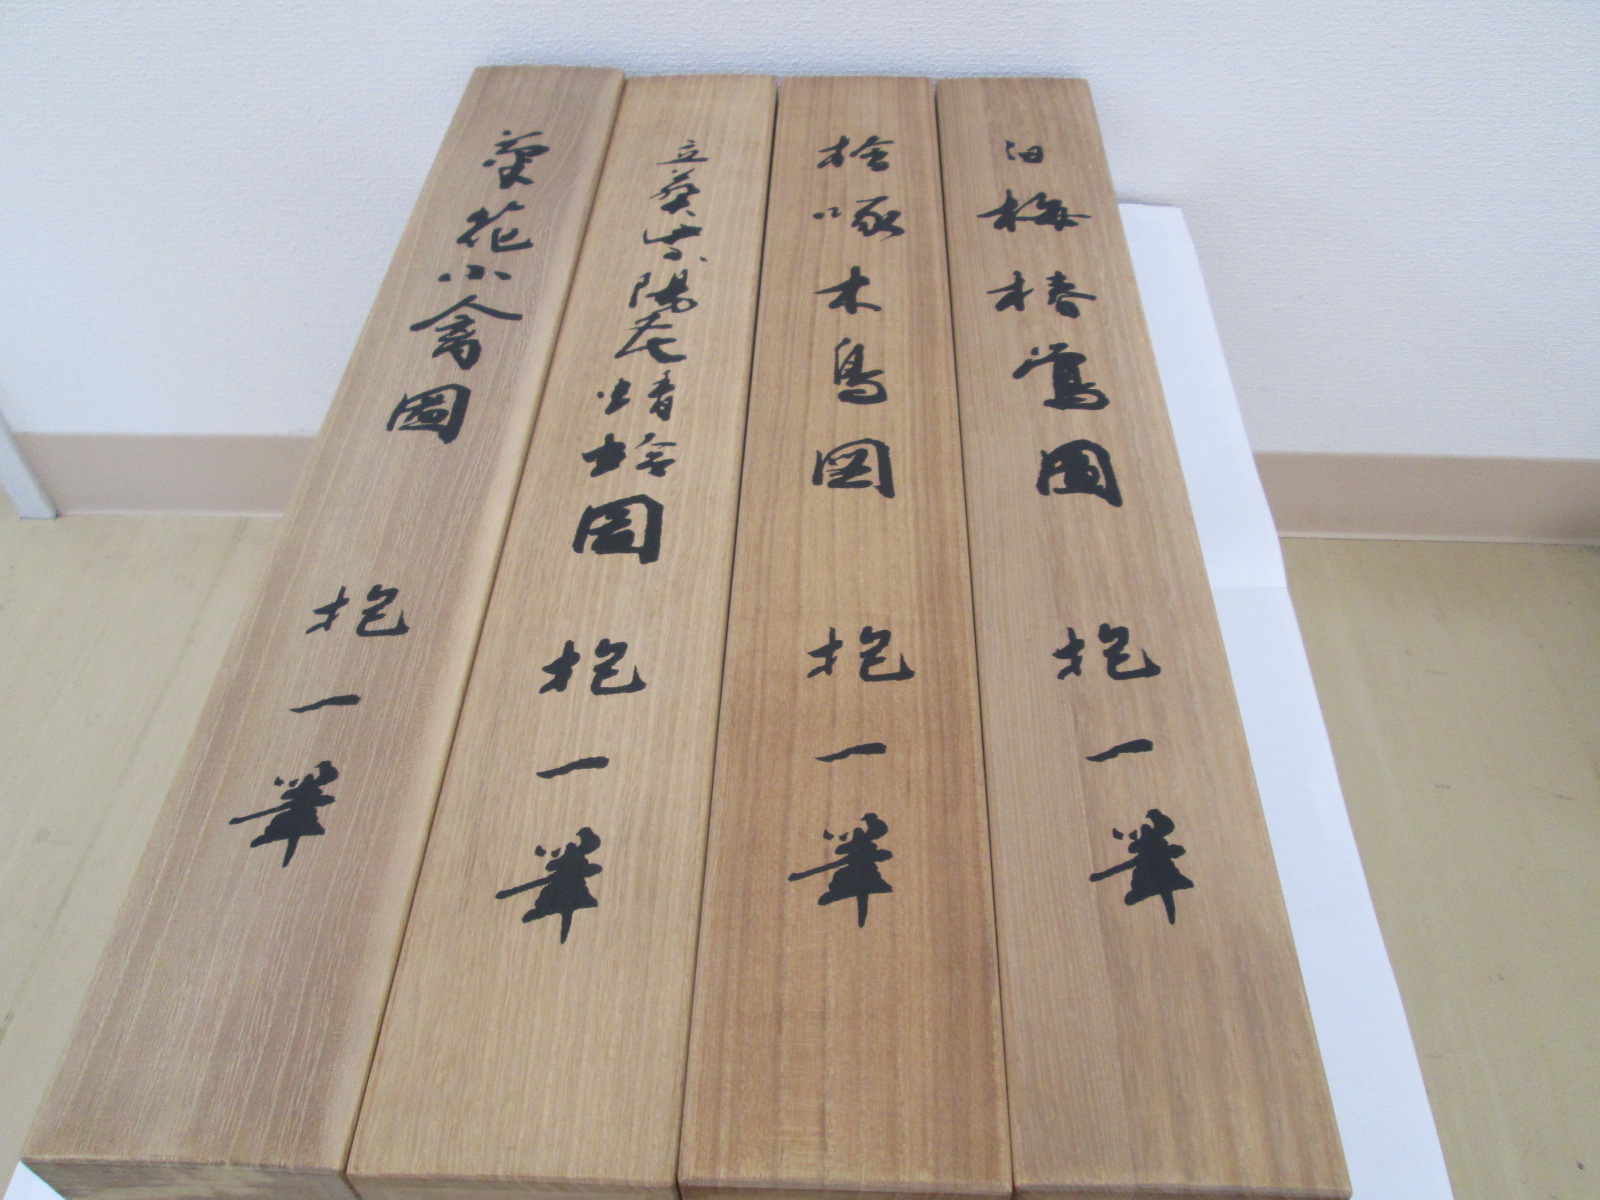 白梅椿鶯圖 抱一筆
檜啄木鳥図 抱一筆
立葵紫陽花蜻蛉圖 抱一筆
菊花小禽圖 抱一筆